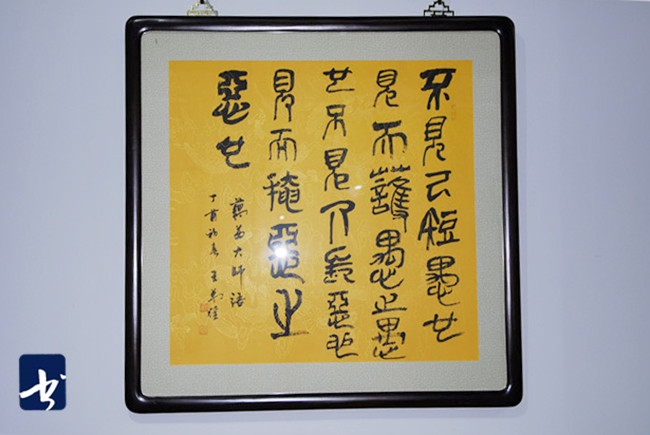 不見己短愚也
見而護愚之愚
也不見人長惡也
見而掩惡之
惡也
蕅益大師語
丁酉 春 王
书